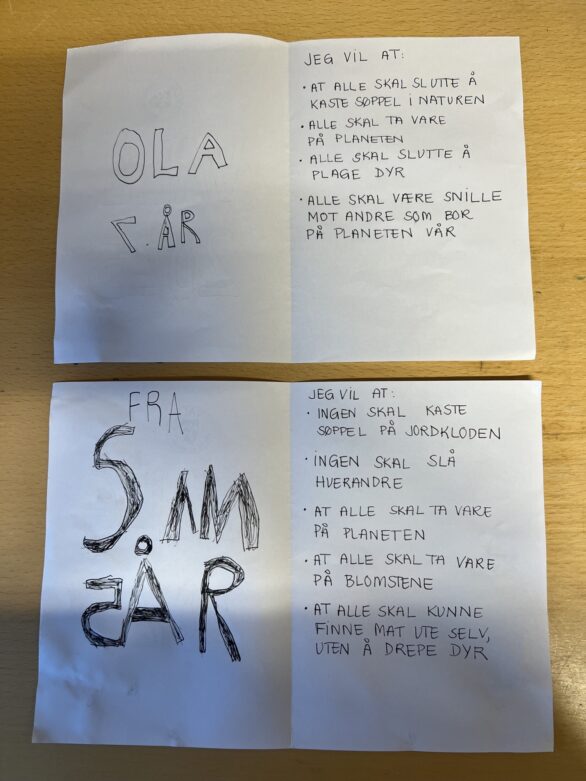 OLA
7. ÅR
JEG VIL AT:
· AT ALLE SKAL SLUTTE Å
KASTE SØPPEL I NATUREN
· ALLE SKAL TA VARE
PÅ PLANETEN
· ALLE SKAL SLUTTE Å
PLAGE DYR
· ALLE SKAL VÆRE SNILLE
MOT ANDRE SOM BOR
PÅ PLANETEN VÅR
FRA
5 ÅR
JEG VIL AT:
· INGEN SKAL KASTE
SØPPEL PÅ JORDKLODEN
· INGEN SKAL SLÅ
HVERANDRE
· AT ALLE SKAL TA VARE
PÅ PLANETEN
· AT ALLE SKAL TA VARE
PÅ BLOMSTENE
· AT ALLE SKAL KUNNE
FINNE MAT UTE SELV,
UTEN Å DREPE DYR